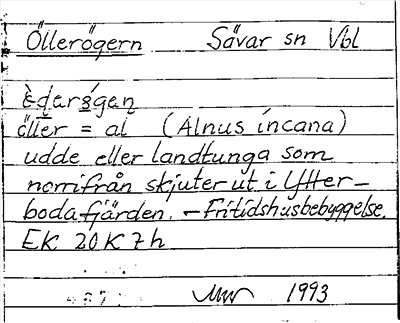 Öllerögern Sävar sn Vbl
äller = al (Alnus incana)
udde eller landtunga som
norrifrån skjuter ut i Ytter-
bodafjärden. - Fritidshusbebyggelse.
EK 20K7h
1993